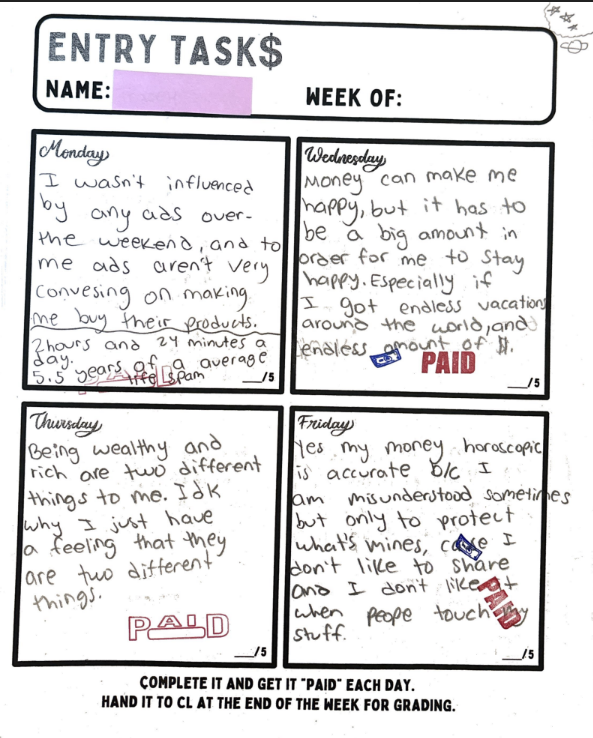 ENTRY TASK$
NAME:
WEEK OF:
Monday
I wasn't influenced
by any ads over-
the weekend, and to
me ads aren't very
convesing on making
me buy their products.
2hours and 24 minutes a
day.
5.5 years of a average
life spam
PAID
__/5
Wednesday
Money can make me
happy, but it has to
be a big amount in
order for me to stay
happy. Especially if
I got endless vacations
around the world, and
endless amount of $.
PAID
__/5
Thursday
Being wealthy and
rich are two different
things to me. Idk
why I just have
a feeling that they
are two different
things.
PAID
__/5
Friday
Yes my money horoscopic
is accurate b/c I
am misunderstood sometimes
but only to protect
what's mines, I
don't like to share
and I don't like it
when peope touch my
stuff.
PAID
__/5
COMPLETE IT AND GET IT "PAID" EACH DAY.
HAND IT TO CL AT THE END OF THE WEEK FOR GRADING.